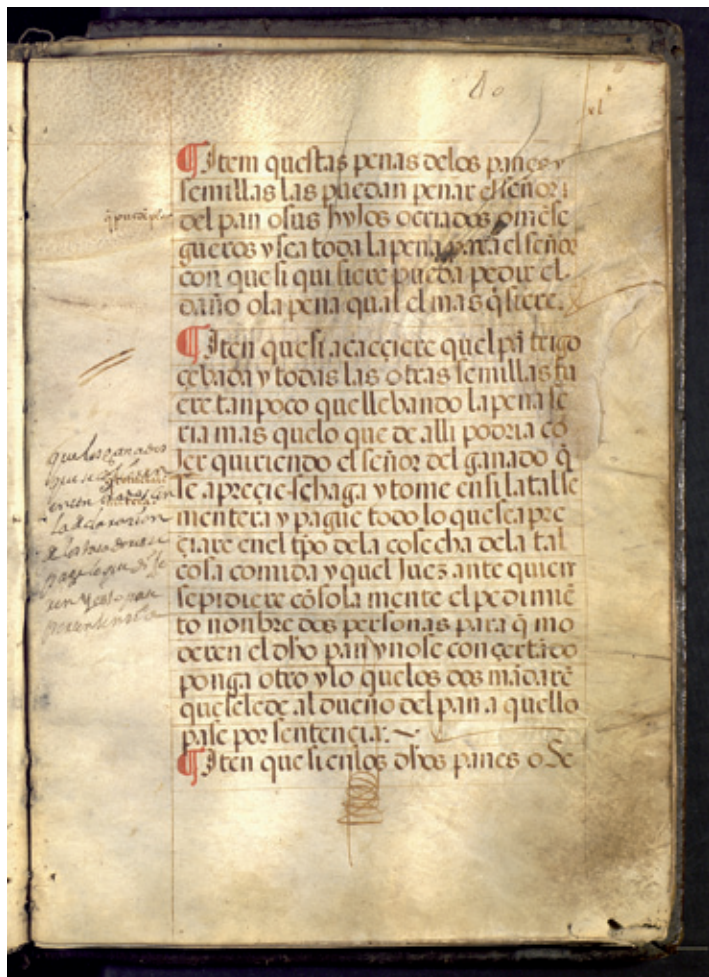 40
xl
¶ Item questas penas delos panes y
semillas las puedan penar el señor
del pan osus hyios ocriados omẽse
gueros y sea toda la pena para el señor
con que si qui siere pueda pedir el
daño ola pena qual el mas q̃ siere.
¶ Iten que si acaeçiere quel pã trigo
çebada y todas las otras semillas fu
ere tanpoco que llebando la pena se
ria mas quelo que de alli podria co
ser quiriendo el señor del ganado q̃
se apreçie sehaga y tome en si la tal se
mentera y pague todo lo que sea pre
çiare enel tp̃o dela cosecha dela tal
cosa comida y quel Juez ante quien
sepidiere cõ sola mente el pedimiẽ
to nonbre dos personas para q̃ mo
deren el dho pan y nose conçertãdo
ponga otro y lo quelos dos mãdarẽ
que sele de al dueño del pan a quello
pase por sentençia:~
¶ Iten que si enlos dhos panes o Se
que los ganados
que se
la declaracion